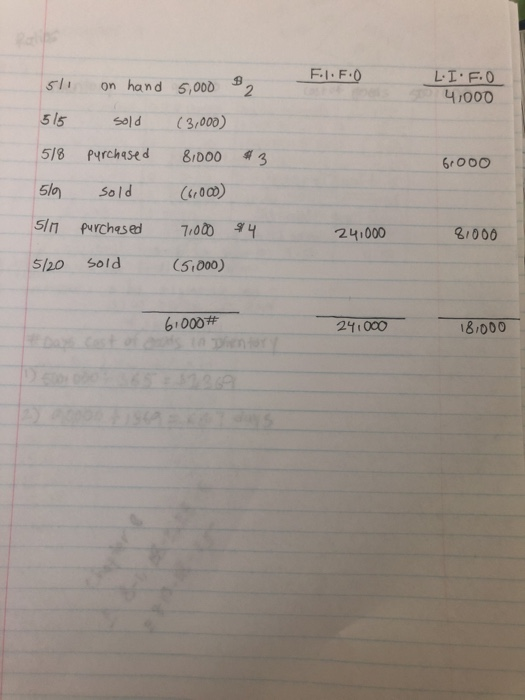 F.I.F.O L.I.F.O
5/1 on hand 5,000 $2 4,000
5/5 sold (3,000)
5/8 purchased 8,000 $3 6,000
5/9 sold (6,000)
5/17 purchased 7,000 $4 24,000 8,000
5/20 sold (5,000)
6,000# 24,000 18,000